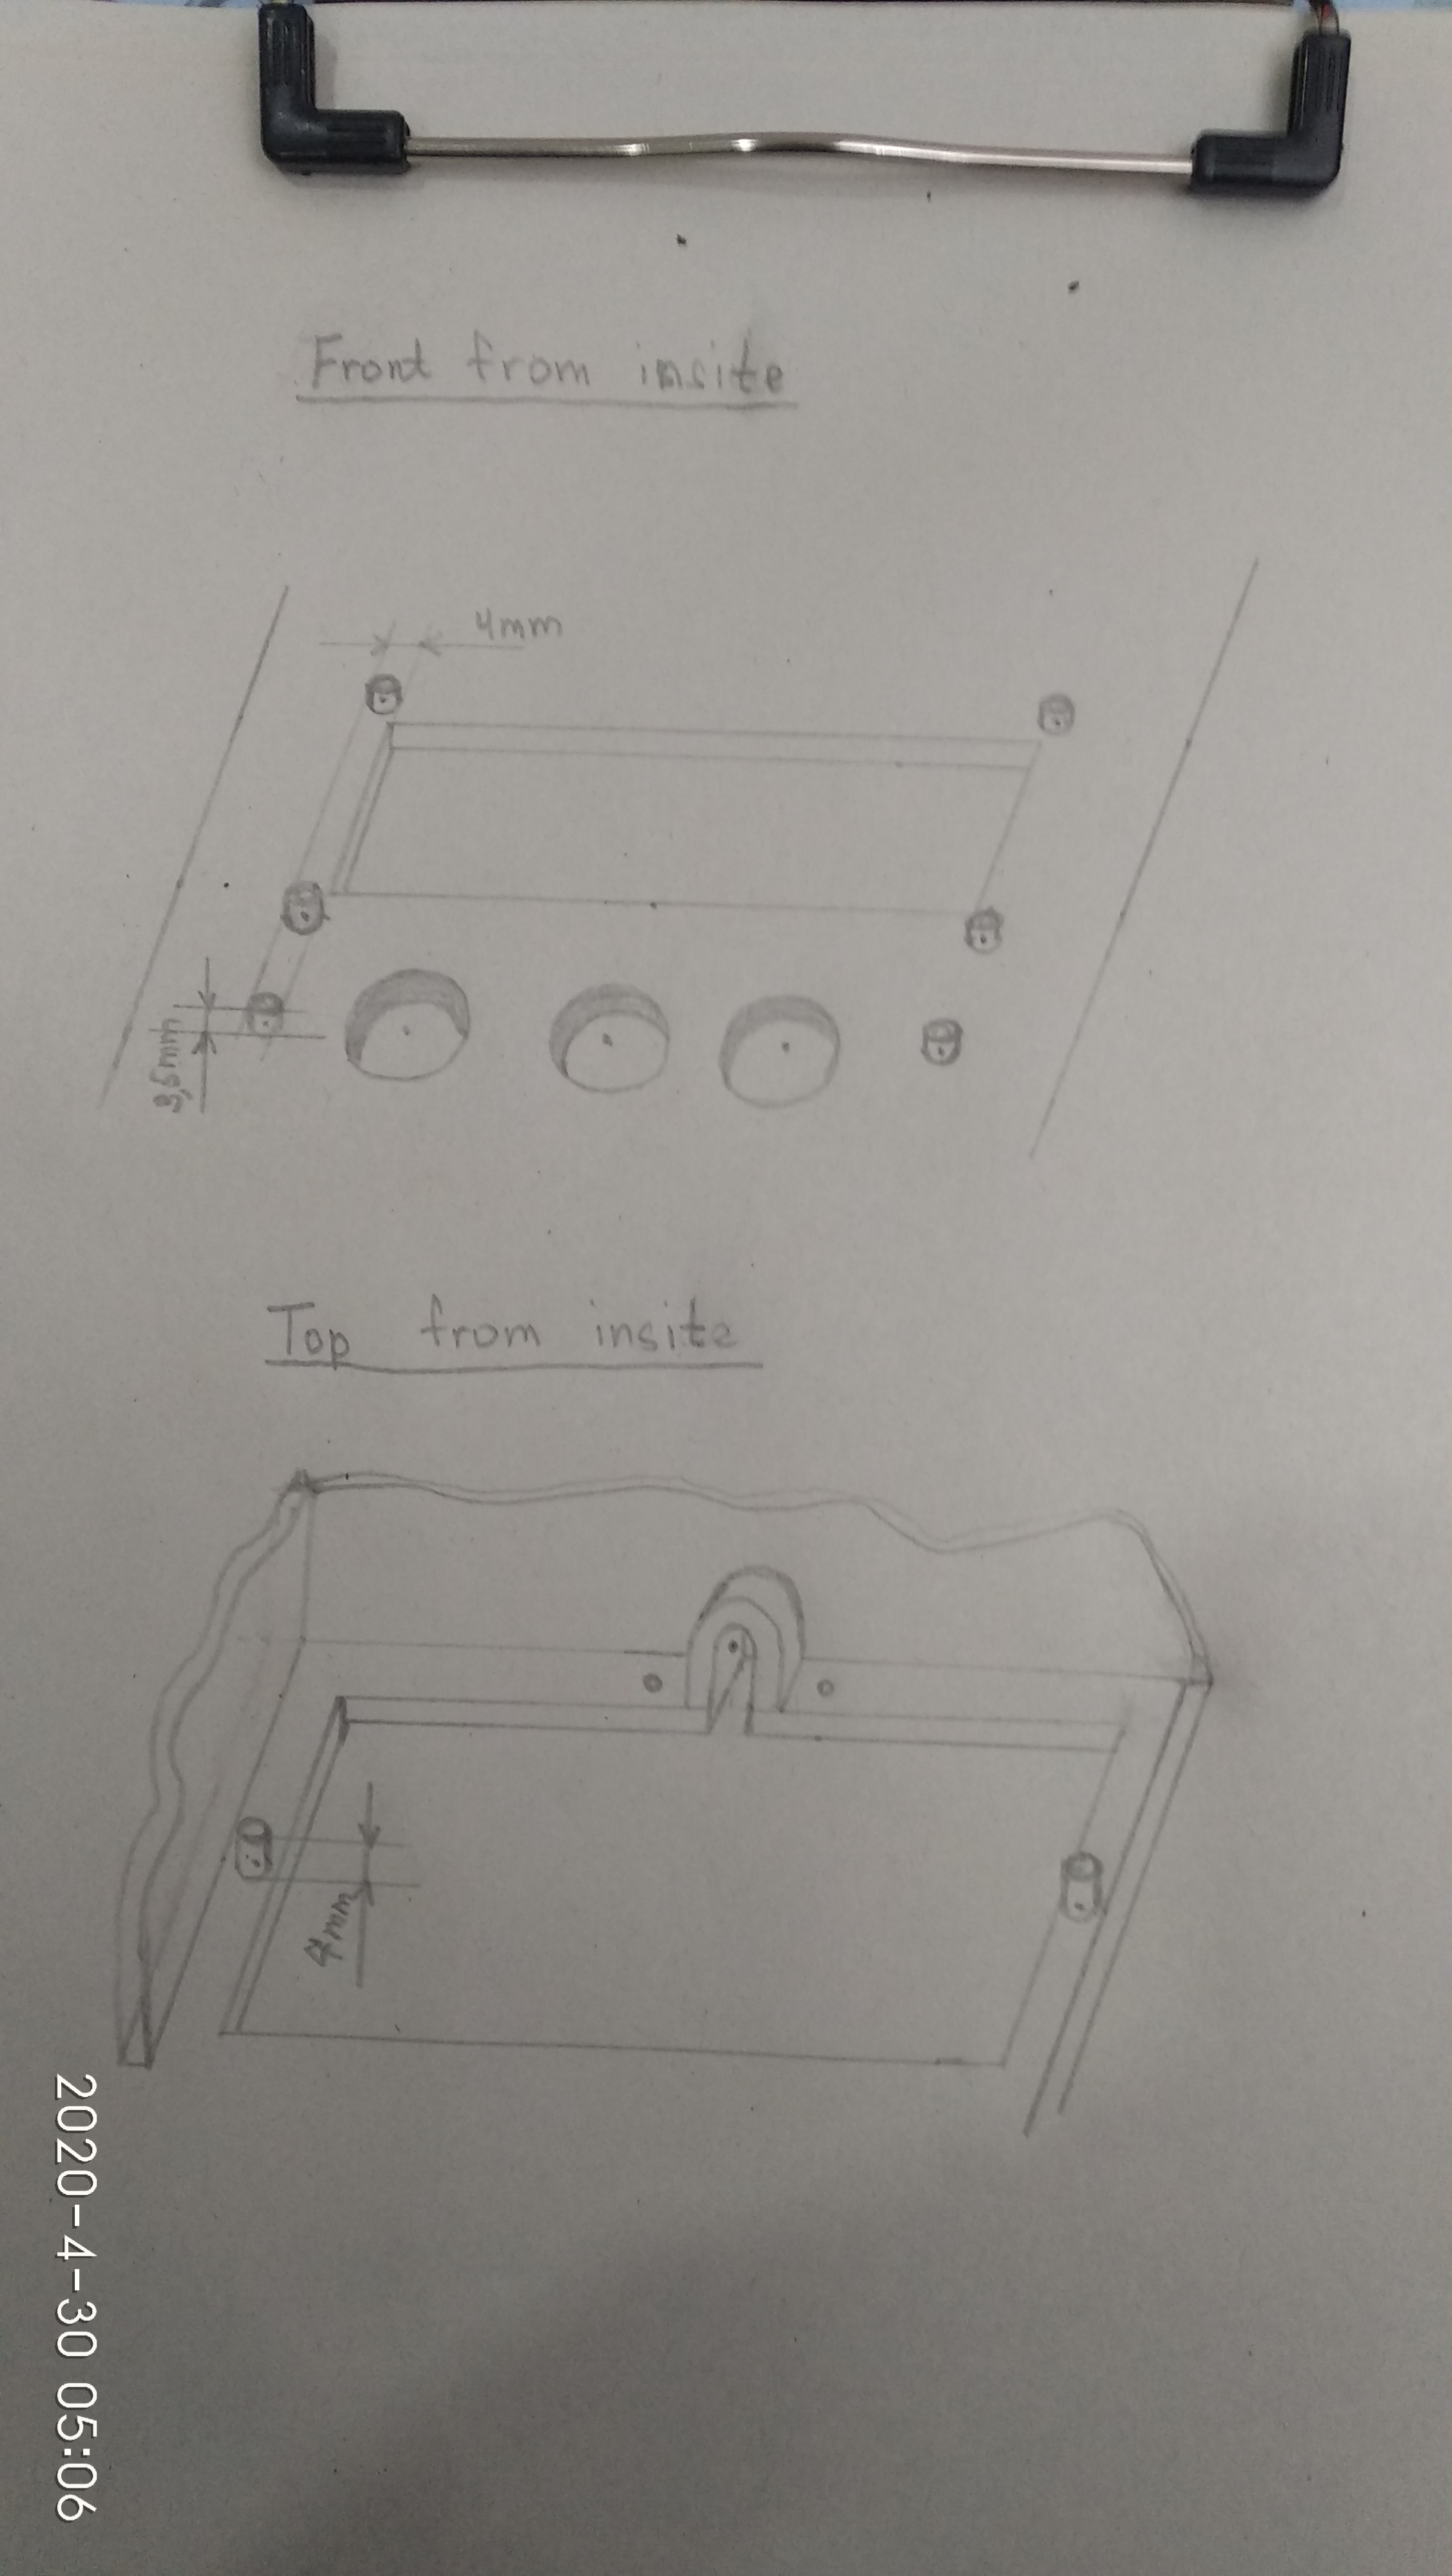 Front from insite
4mm
3,5mm
Top from insite
4mm
2020-4-30 05:06